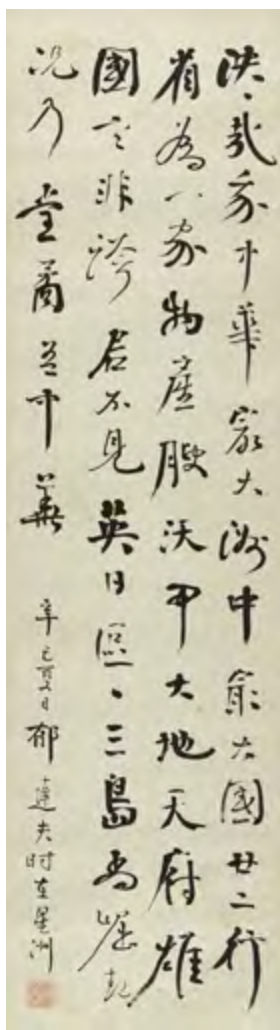 泱々哉我中華最大洲中最大國廿二行
省為一家物產腴沃甲大地天府雄
國言非誇君不見英日區々三島尚崛起
況乃堂矞吾中華 辛巳夏日郁達夫時在星洲